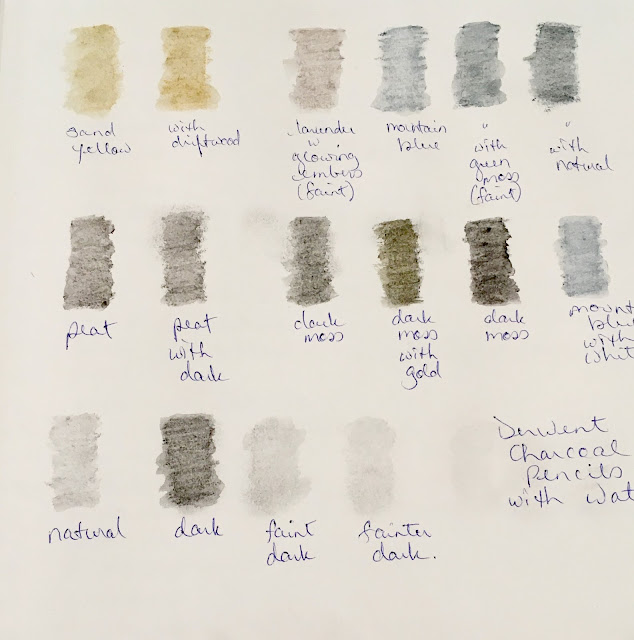 sand
yellow
with
driftwood
lavender
w
glowing
embers
(faint)
mountain
blue
"
with
green
moss
(faint)
"
with
natural
peat
peat
with
dark
dark
moss
dark
moss
with
gold
dark
moss
mount
blue
with
whit
natural
dark
faint
dark
fainter
dark.
Derwent
Charcoal
Pencils
with Wat